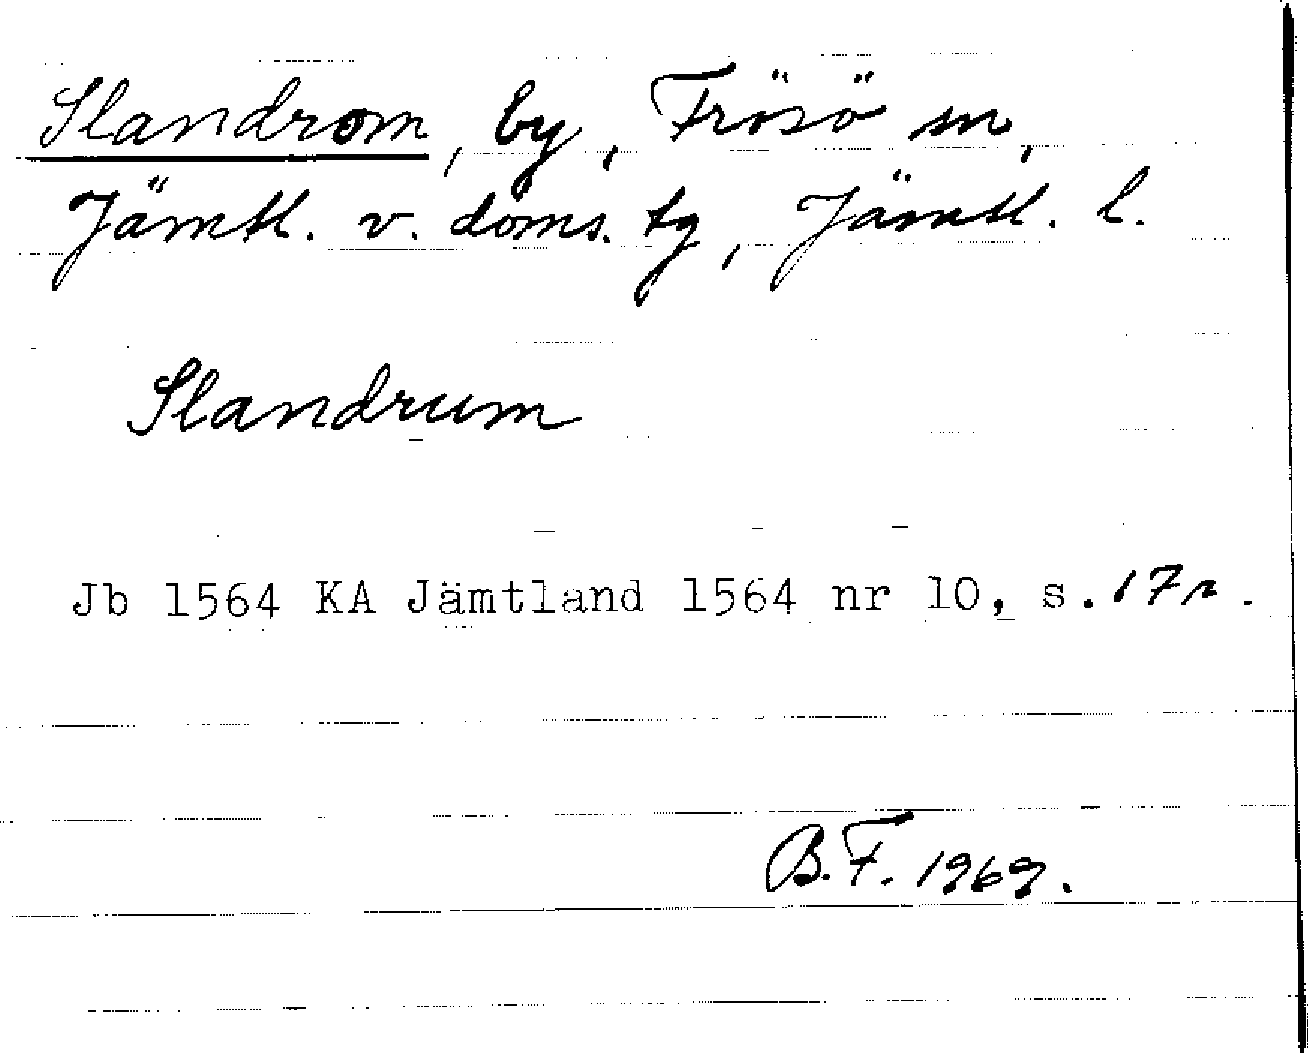 Slandrom, by, Frösö sn,
Jämtl. v. doms. tg, Jämtl. l.
Slandrum
Jb 1564 KA Jämtland 1564 nr 10, s. 17r.
B.F. 1969.